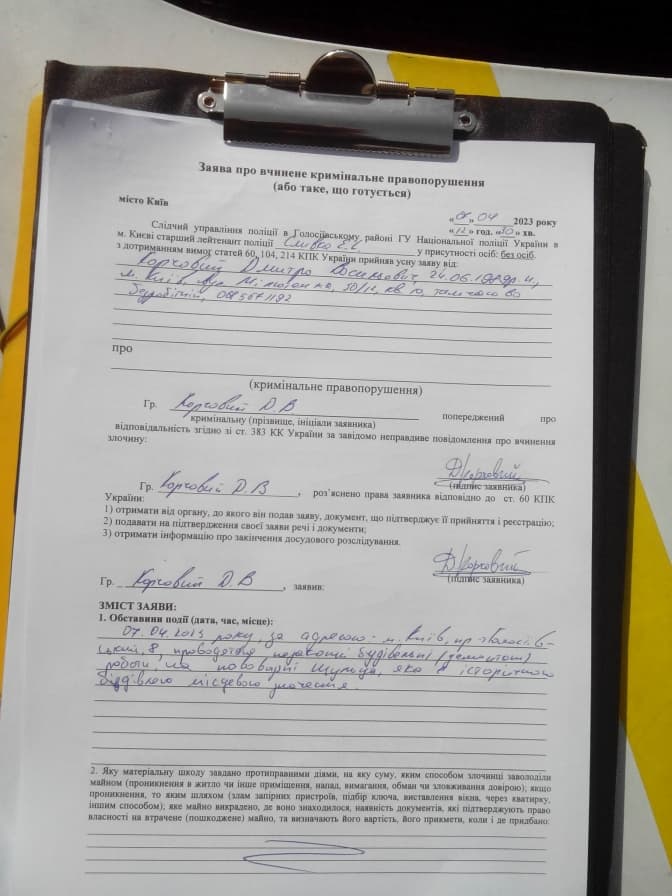 Заява про вчинене кримінальне правопорушення
(або таке, що готується)
місто Київ
04 2023 року
«12» год. «50» хв.
Слідчий управління поліції в Голосіївському районі ГУ Національної поліції України в
м. Києві старший лейтенант поліції у присутності осіб: без осіб.
з дотриманням вимог статей 60, 104, 214 КПК України прийняв усну заяву від:
Корчовий Дмитро 24.06.
м. Київ, вул. 50/12, кв 10,
безробітній,
про
(кримінальне правопорушення)
Гр. Корчовий Д.В попереджений про
кримінальну (прізвище, ініціали заявника)
відповідальність згідно зі ст. 383 КК України за завідомо неправдиве повідомлення про вчинення
злочину:
ДКорчовий
(підпис заявника)
Гр. Корчовий Д.В , роз'яснено права заявника відповідно до ст. 60 КПК
України:
1) отримати від органу, до якого він подав заяву, документ, що підтверджує її прийняття і реєстрацію;
2) подавати на підтвердження своєї заяви речі і документи;
3) отримати інформацію про закінчення досудового розслідування.
ДКорчовий
(підпис заявника)
Гр. Корчовий Д.В , заявив:
ЗМІСТ ЗАЯВИ:
1. Обставини події (дата, час, місце):
07.04.2023 року, за адресою: м. Київ, пр-т Голосіїв-
ський, 8, проводяться незаконні будівельні (демонтаж)
роботи, на пововарні Шульца, яка є історичною
будівлею місцевого значення.
2. Яку матеріальну шкоду завдано протиправними діями, на яку суму, яким способом злочинці заволоділи
майном (проникнення в житло чи інше приміщення, напад, вимагання, обман чи зловживання довірою); якщо
проникнення, то яким шляхом (злам запірних пристроїв, підбір ключа, виставлення вікна, через кватирку,
іншим способом); яке майно викрадено, де воно знаходилося, наявність документів, які підтверджують право
власності на втрачене (пошкоджене) майно, та визначають його вартість, його прикмети, коли і де придбано: